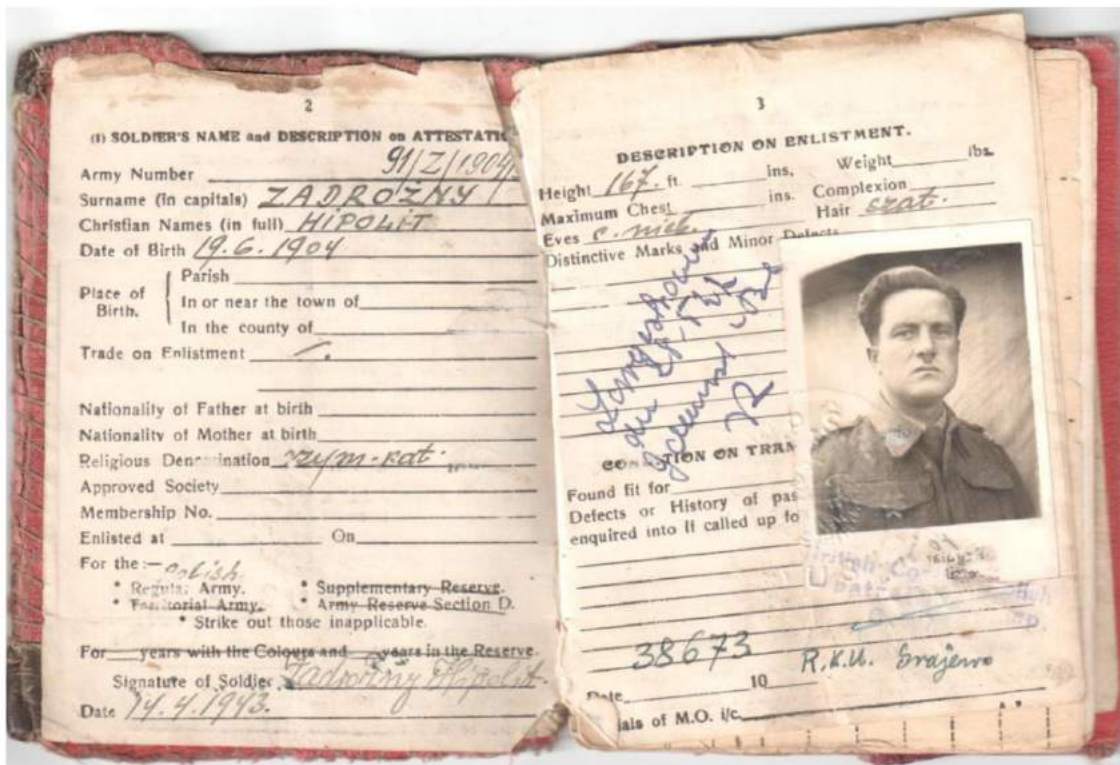 2
(1) SOLDIER'S NAME and DESCRIPTION on ATTESTATIO
Army Number 91/Z/1904
Surname (in capitals) ZADROŻNY
Christian Names (in full) HIPOLIT
Date of Birth 19.6.1904
Place of Birth.
Parish
In or near the town of
In the county of
Trade on Enlistment
Nationality of Father at birth
Nationality of Mother at birth
Religious Denomination rzym-kat.
Approved Society
Membership No.
Enlisted at On
For the:— Polish
* Regular Army. * Supplementary Reserve.
* Territorial Army. * Army Reserve Section D.
* Strike out those inapplicable.
For years with the Colours and years in the Reserve.
Signature of Soldier Zadrożny Hipolit
Date 14.4.1943.
3
DESCRIPTION ON ENLISTMENT.
Height 167. ft ins. Weight lbs.
Maximum Chest ins. Complexion
Eyes c. nieb. Hair szat.
Distinctive Marks and Minor Defects
CONDITION ON TRAN
Found fit for
Defects or History of pas
enquired into if called up fo
British
38673 R.K.U. Grajewo
Date 10
ials of M.O. i/c